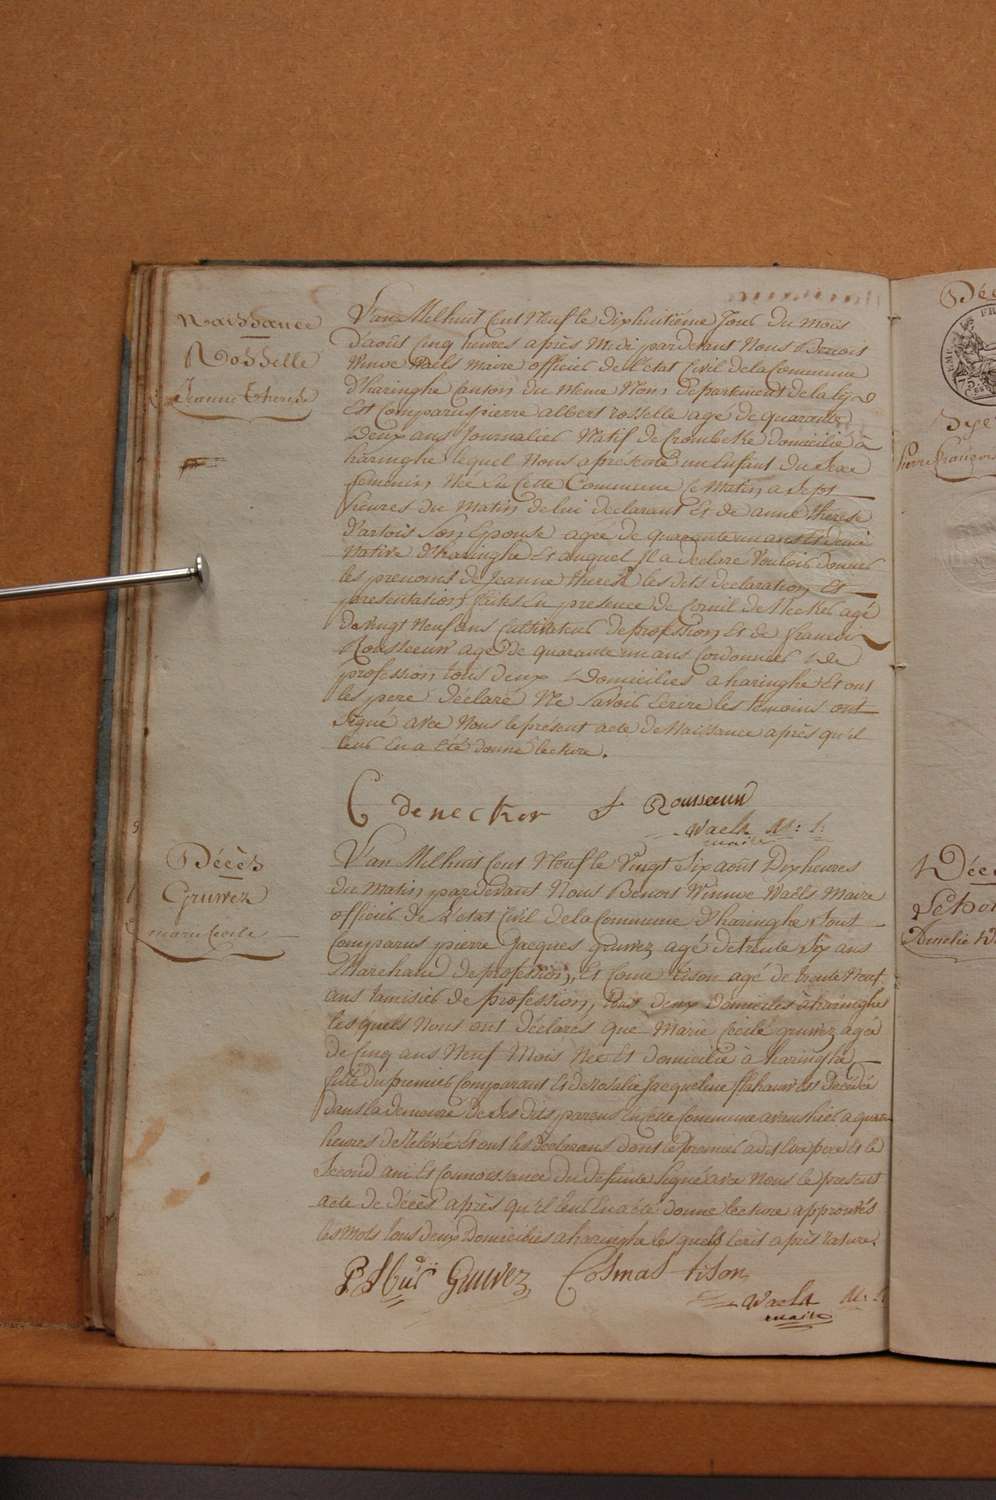 Naissance
Rosselle
Jeanne Therese
L'an Mil huit Cent Neuf le dixhuitième Jour du mois
d'août Cinq heures après Midi pardevant Nous Benoit
Winuve Waels maire officier de L'etat Civil de la Commune
d'haringhe Canton du Meme Nom, Departement de la Lys
Est Comparu pierre albert rosselle agé de quarante
Deux ans Journalier Natif de Crombeke domicilié à
haringhe lequel Nous a presenté un Enfant du Sexe
feminin, Née En Cette Commune Ce Matin, a Sept
heures du Matin de lui declarant Et de anne therese
Dartois Son Epouse agée de quarante un ans Et demi
Native d'haringhe Et auquel Il a declaré Vouloir donner
les prenoms de Jeanne therese les dits declaration, Et
presentation, faites En presence de Cornil de Necker agé
De vingt Neuf ans Cultivateur de profession, Et de francois
Rousseeuw agé de quarante un ans Cordonnier De
profession, tous deux Domiciliés a haringhe Et ont
les pere déclaré Ne Savoir Ecrire les témoins ont
Signé avec Nous le présent acte de Naissance après qu'il
leur En a été donné lecture.
C denecker f Rousseeuw
Waels M: L:
maire
Décès
Gruwez
marie Cecile
L'an Mil huit Cent Neuf le Vingt Six août Dix heures
du Matin, pardevant Nous Benoit Winuve Waels Maire
officier de L'etat Civil de la Commune d'haringhe Sont
Comparus pierre Jacques gruwez agé de trente Six ans
Marchand de profession, Et Come tison agé de trente Neuf
ans tamisier de profession, tous deux Domiciliés à haringhe
les quels Nous ont déclarés que Marie Cécile gruwez agée
De Cinq ans Neuf Mois Née Et domiciliée à haringhe,
fille du premier Comparant Et de Rosalie Jacqueline flahauw Est Décédée
Dans la demeure De Ses dits parens En cette Commune avanthier a quatre
heures de Relévée Et ont les Declarans dont le premier a dit Etre pere Et le
Second ami Et Connoissance du defunte Signé avec Nous le présent
acte de décès après qu'il leur En a été donné lecture approuvés
les Mots tous deux Domiciliés a haringhe les quels Ecrit après rature.
P Gruwez Cosmas tison
Waels M: L
maire
Déc
Dye
Pierre françois
Décè
Schot
Amelie